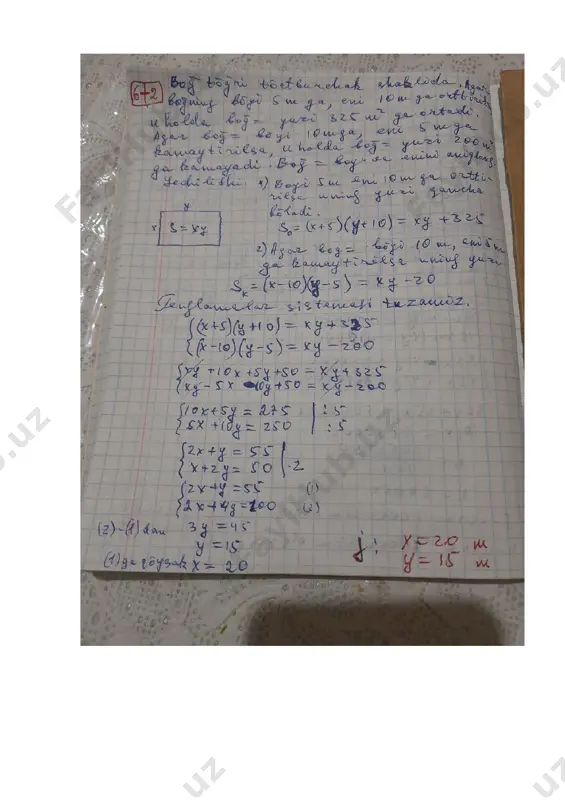 6-2
Bog̃ tog̃ri tortburchak shaklida. Agar
bog̃ning bo'yi 5 m ga, eni 10 m ga orttirilsa
u holda bog̃ = yuzi 325 m² ga ortadi.
Agar bog̃ = boyi 10 m ga, eni 5 m ga
kamaytirilsa, u holda bog̃ = yuzi 200 m²
ga kamayadi. Bog̃ = boyi va enini aniqlang
1) Boyi 5 m eni 10 m ga ortti-
rilsa uning yuzi qancha
boladi.
y
x S = xy
S₀ = (x+5)(y+10) = xy + 325
2) Agar bog̃ = boyi 10 m, eni 5 m
ga kamaytirilsa uning yuzi
Sₖ = (x-10)(y-5) = xy - 20
Tenglamalar sistemasi tuzamiz.
(x+5)(y+10) = xy + 325
(x-10)(y-5) = xy - 200
xy + 10x + 5y + 50 = xy + 325
xy - 5x - 10y + 50 = xy - 200
10x + 5y = 275 | : 5
5x + 10y = 250 | : 5
2x + y = 55
x + 2y = 50 | · 2
2x + y = 55 (1)
2x + 4y = 100 (2)
(2) - (1) dan 3y = 45
y = 15
(1) ga qoysak x = 20
j: x = 20 m
y = 15 m
FayHub.uz